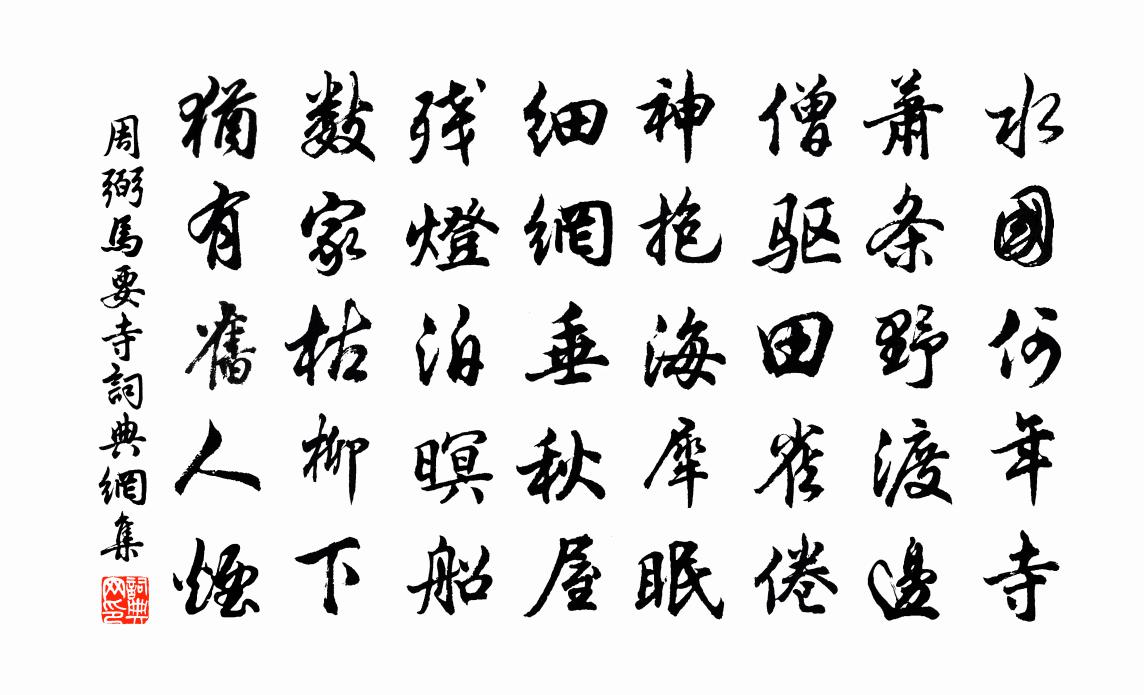 水國何年寺
萧条野渡邊
僧驱田雀倦
神抱海犀眠
细網垂秋屋
残燈泊暝船
數家枯柳下
猶有舊人煙
周弼馬要寺詞典網集
詞典网印